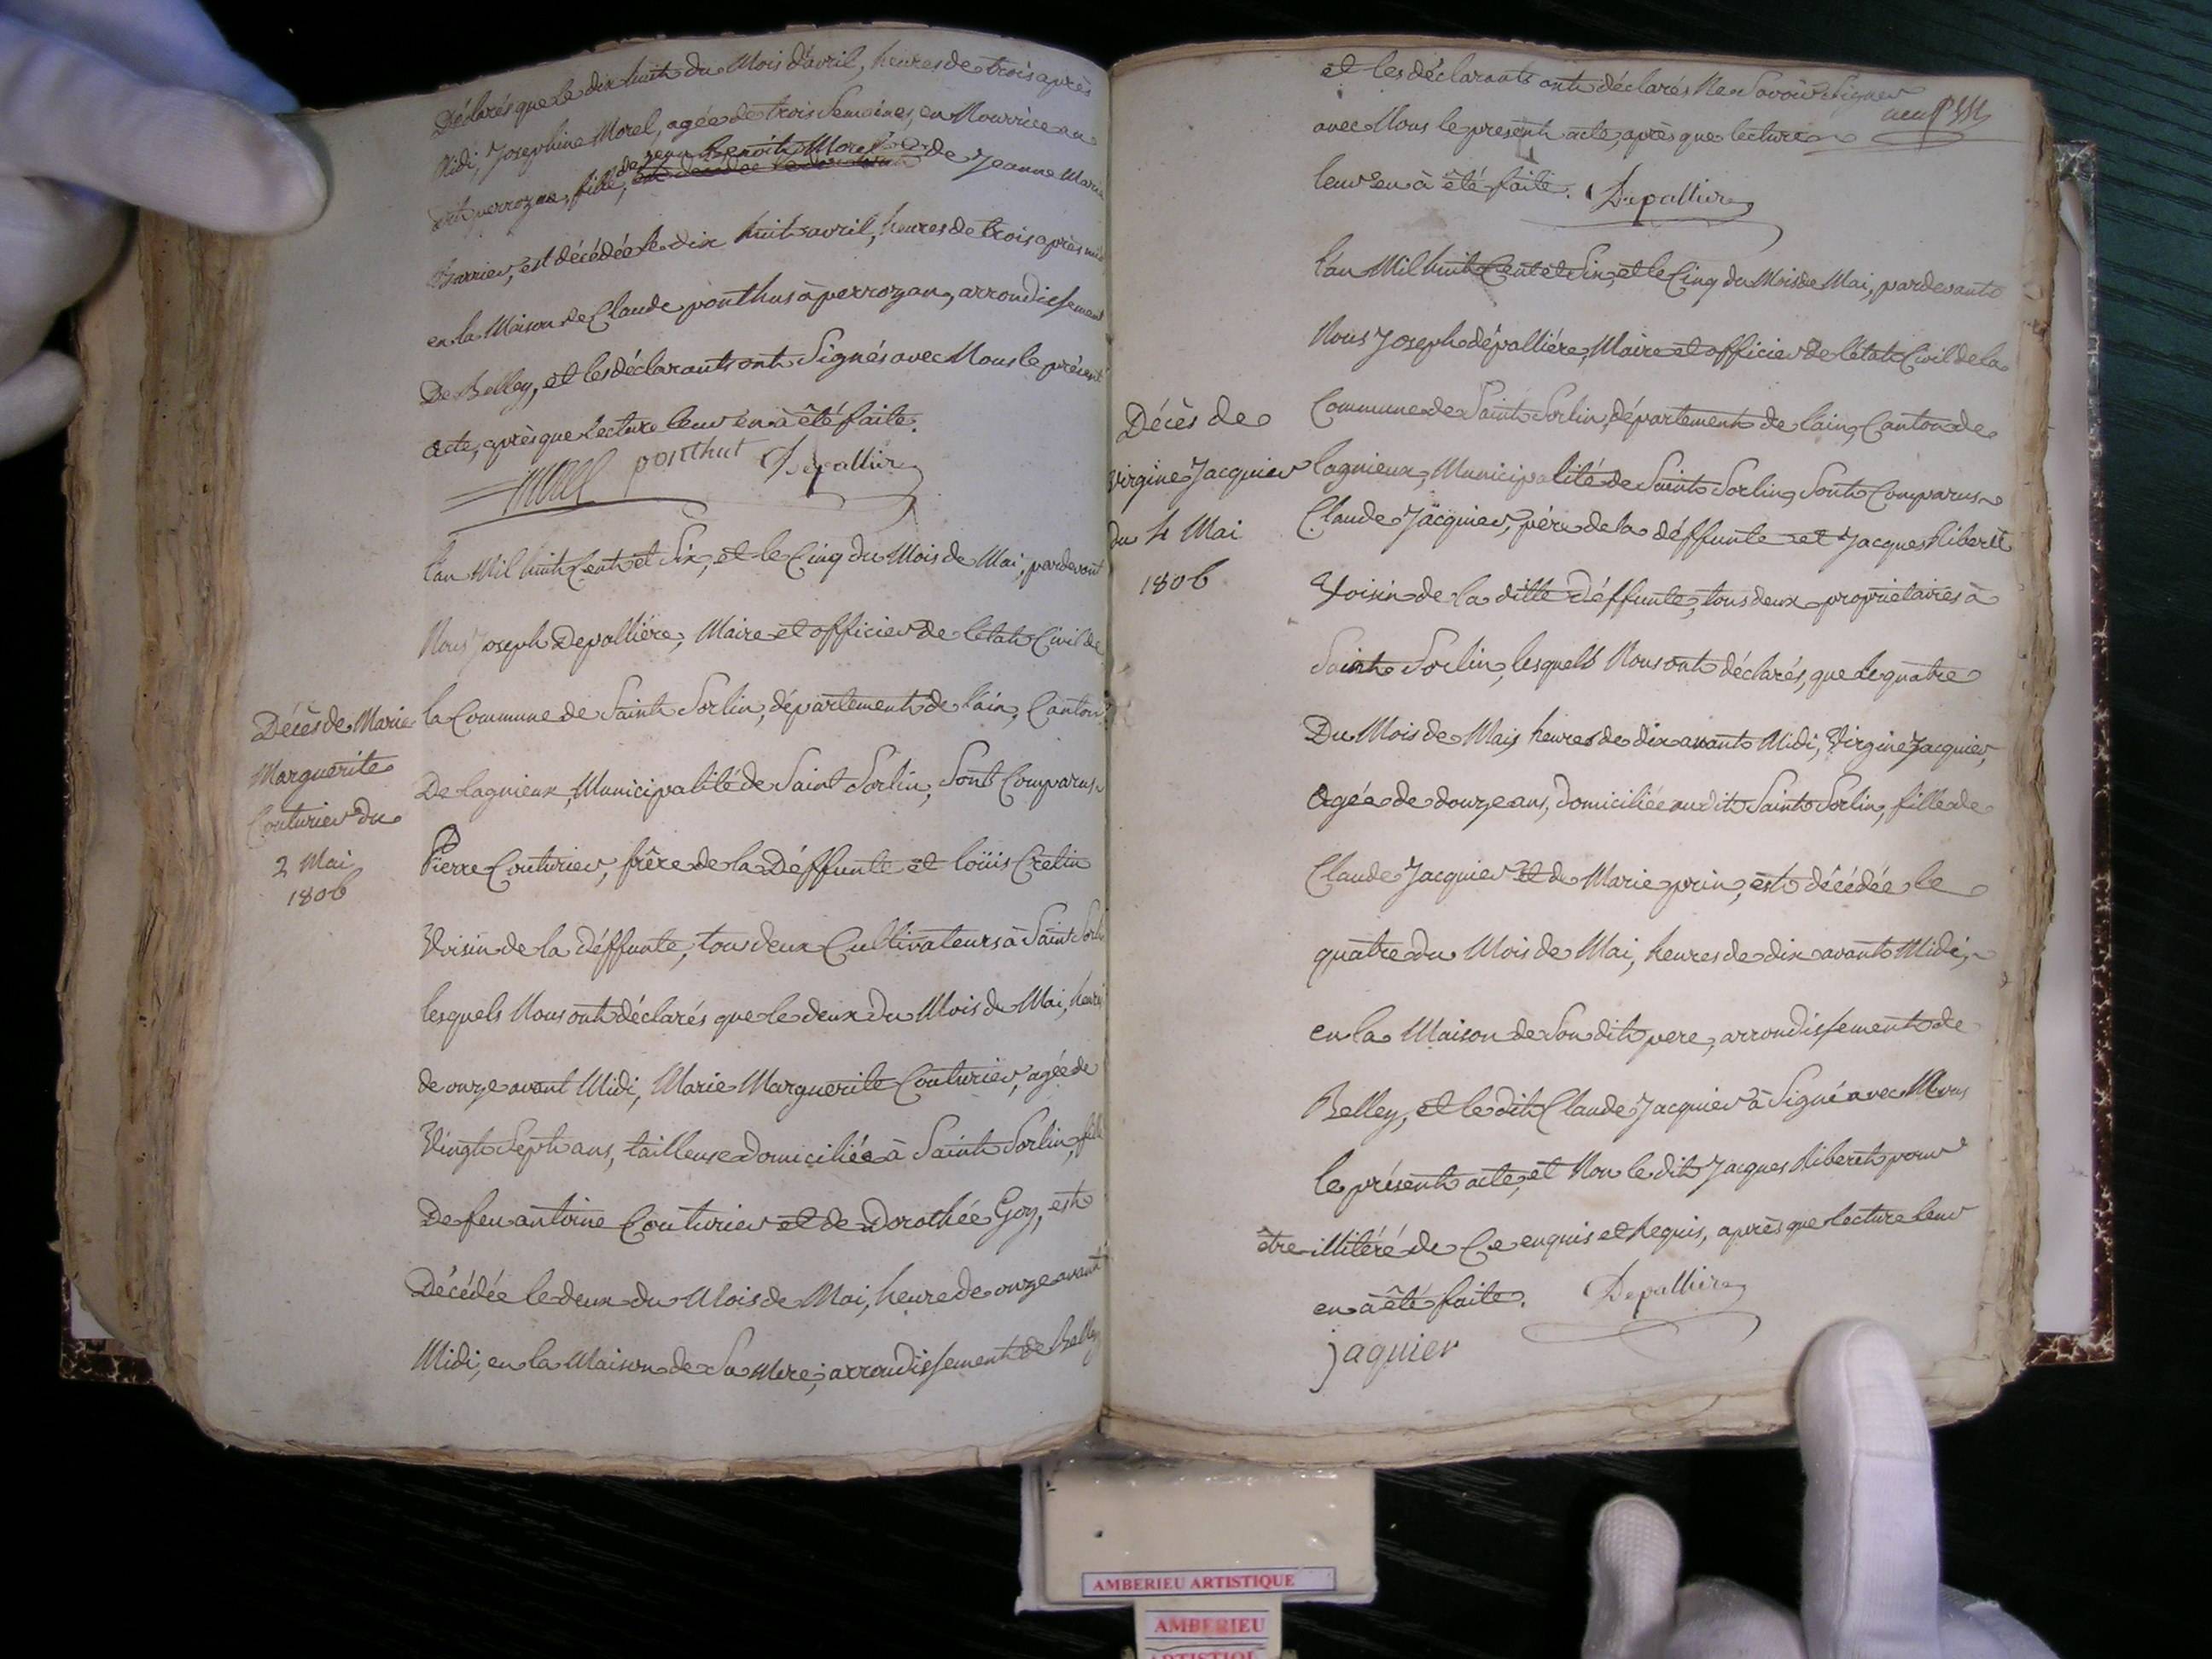 Déclarés que le dix huit du Mois d'avril, heures de trois après
Midi, Josephine Morel, agée de trois Semaines, en Nourrice au
dit perrozan, fille, de Jean Benoit Morel et de Jeanne Marie
Barrier, est décédée le dix huit avril, heures de trois après midi
en la Maison de Claude ponthus à perrozan, arrondissement
De Belley, et les déclarants ont Signés avec Nous le présent
acte, après que lecture leur en à été faite.
morel ponthut Depalliere
l'an Mil huit Cent et Six, et le Cinq du Mois de Mai, pardevant
Nous Joseph Depalliére, Maire et officier de l'état Civil de
la Commune de Saint Sorlin, département de l'ain, Canton
De lagnieux, Municipalité de Saint Sorlin, Sont Comparus
Pierre Couturier, frère de la Déffunte et loüis Cretin
Voisin de la déffunte, tou deux Cultivateurs à Saint Sorlin
lesquels Nous ont déclarés que le deux du Mois de Mai, heures
de onze avant Midi, Marie Marguerite Couturier, agée de
Vingt Sept ans, tailleuse domiciliée à Saint Sorlin, fille
De feu antoine Couturier et de Dorothée Goy, est
Décédée le deux du Mois de Mai, heure de onze avant
Midi, en la Maison de Sa Mere, arrondissement de Belley
Décès de Marie
Marguerite
Couturier du
2 Mai
1806
et les déclarants ont déclarés Ne Savoir Signer
avec Nous le présent acte, après que lecture
leur en à été faite. Depalliere
l'an Mil huit Cent et Six, et le Cinq du Mois de Mai, pardevant
Nous Joseph dépalliére, Maire et officier de l'état Civil de la
Commune de Saint Sorlin, département de l'ain, Canton de
lagnieux, Municipalité de Saint Sorlin, Sont Comparus
Claude Jacquier, père de la déffunte et Jacques Ribert
Voisin de la ditte Déffunte, tous deux propriétaires à
Saint Sorlin, lesquels Nous ont déclarés, que le quatre
Du Mois de Mai, heures de dix avant Midi, Virgine Jacquier,
agée de douze ans, domiciliée au dit Saint Sorlin, fille de
Claude Jacquier et de Marie prin, est décédée le
quatre du Mois de Mai, heures de dix avant Midi,
en la Maison de Son dit pere, arrondissement de
Belley, et le dit Claude Jacquier à Signé avec Nous
le présent acte, et Non le dit Jacques Riberet pour
être illitéré de Ce enquis et Requis, après que lecture leur
en à été faite. Depalliere
jaquier
Décès de
Virgine Jacquier
du 4 Mai
1806
AMBERIEU ARTISTIQUE
AMBERIEU
ARTISTIQUE